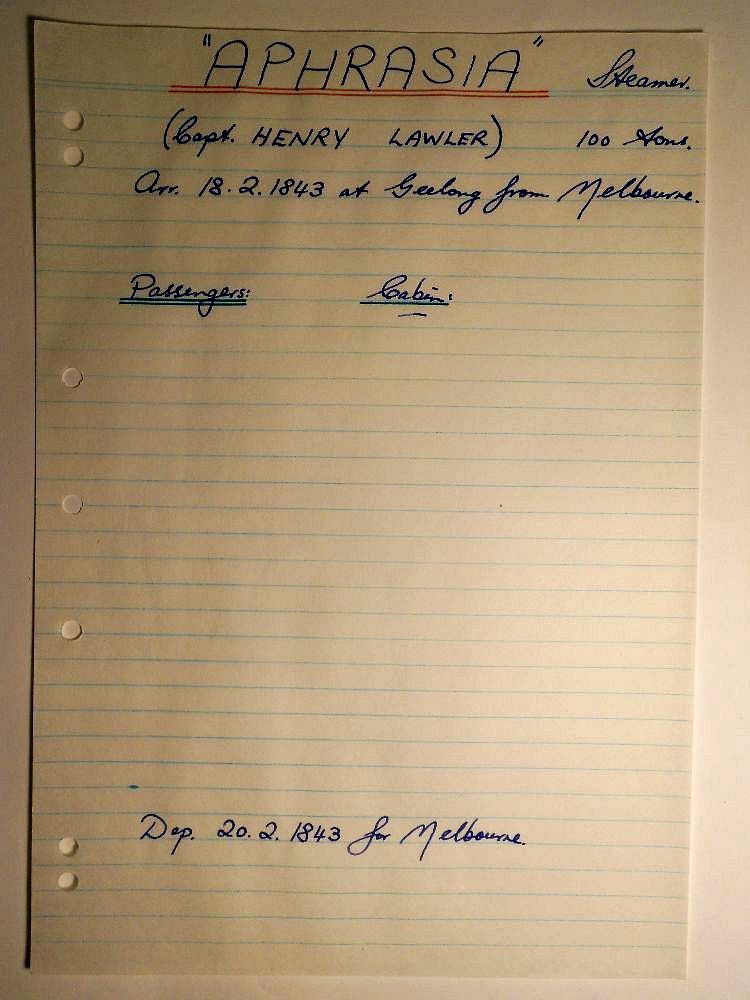 "APHRASIA" Steamer.
(Capt. HENRY LAWLER) 100 tons.
Arr. 18.2.1843 at Geelong from Melbourne.
Passengers: Cabin:
Dep. 20.2.1843 for Melbourne.